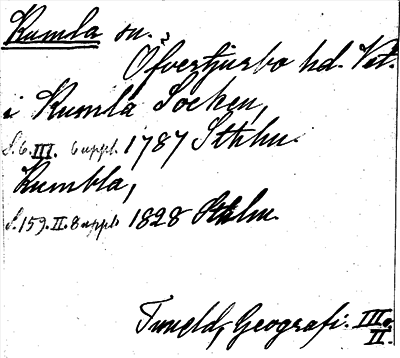 Kumla sn.
Öfvertjurbo hd. Vst.
i Kumla Socken,
S. 6. III. 6 uppl. 1787 Sthlm.
Kumbla,
S. 159. II. 8 uppl. 1828 Sthlm.
Tuneld, Geografi. III o.
II.